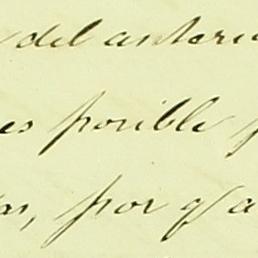 del anterio
es posible p
as, por q/ a